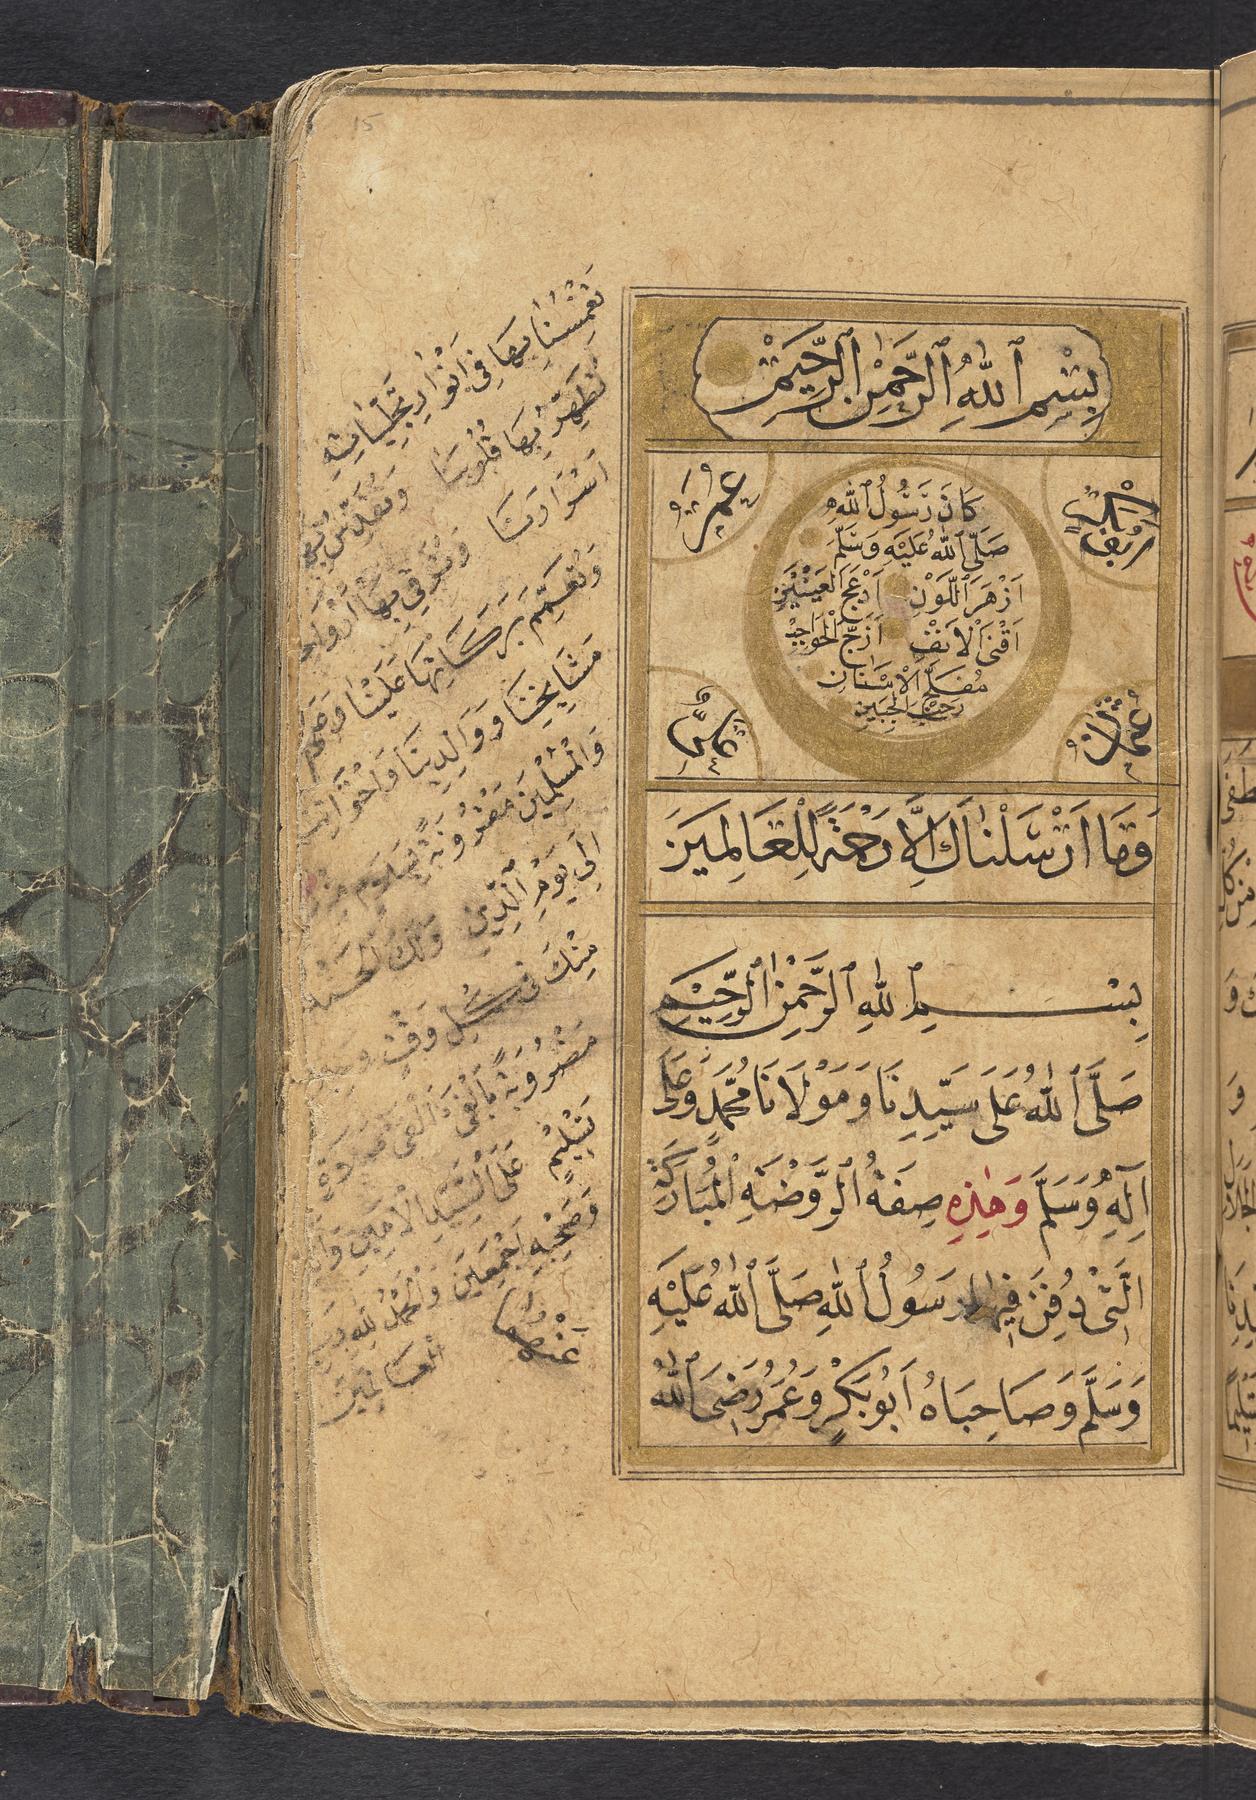 15
بِسْمِ ٱللّٰهِ ٱلرَّحْمٰنِ ٱلرَّحِيْمِ
اَبُو بَكْر
عُمَر
كَانَ رَسُولُ ٱللّٰهِ
صَلَّى ٱللّٰهُ عَلَيْهِ وَسَلَّمَ
اَزْهَرَ ٱللَّوْنِ اَدْعَجَ الْعَيْنَيْنِ
اَقْنَى الْاَنْفِ اَزَجَّ الْحَوَاجِبِ
مُفَلَّجَ الْاَسْنَانِ
رَحْبَ الْجَبِيْنِ
عُثْمَان
عَلِيّ
وَمَا اَرْسَلْنَاكَ اِلَّا رَحْمَةً لِلْعَالَمِيْنَ
بِسْمِ ٱللّٰهِ ٱلرَّحْمٰنِ ٱلرَّحِيْمِ
صَلَّى ٱللّٰهُ عَلَى سَيِّدِنَا وَمَوْلَانَا مُحَمَّدٍ وَعَلَى
اٰلِهِ وَسَلَّمَ وَهٰذِهِ صِفَةُ ٱلرَّوْضَةِ الْمُبَارَكَةِ
الَّتِيْ دُفِنَ فِيْهَا رَسُولُ ٱللّٰهِ صَلَّى ٱللّٰهُ عَلَيْهِ
وَسَلَّمَ وَصَاحِبَاهُ اَبُو بَكْرٍ وَعُمَرُ رَضِىَ ٱللّٰهُ
عَنْهُمَا
تَغْمِسُنَا بِهَا فِي اَنْوَارِ تَجَلِّيَاتِهِ
تُطَهِّرُ بِهَا قُلُوبَنَا وَتُقَدِّسُ بِهَا
اَسْرَارَنَا وَتُرَقِّي بِهَا اَرْوَاحَنَا
وَتُعَمِّمُ بَرَكَاتِهَا عَلَيْنَا وَعَلَى
مَشَايِخِنَا وَوَالِدِيْنَا وَاِخْوَانِنَا
وَالْمُسْلِمِيْنَ مَقْرُونَةً بِسَلَامٍ
اِلَى يَوْمِ ٱلدِّيْنِ وَلَكَ الْحَمْدُ
مِنْكَ فِي كُلِّ وَقْتٍ
مَضْرُوْبَةً بِاَلْفَيْ اَلْفَيْ صَلَاةٍ
تَسْلِيْمٍ عَلَى ٱلسَّيِّدِ الْاَمِيْنِ وَاٰلِهِ
وَصَحْبِهِ اَجْمَعِيْنَ وَالْحَمْدُ لِلّٰهِ رَبِّ
الْعَالَمِيْنَ